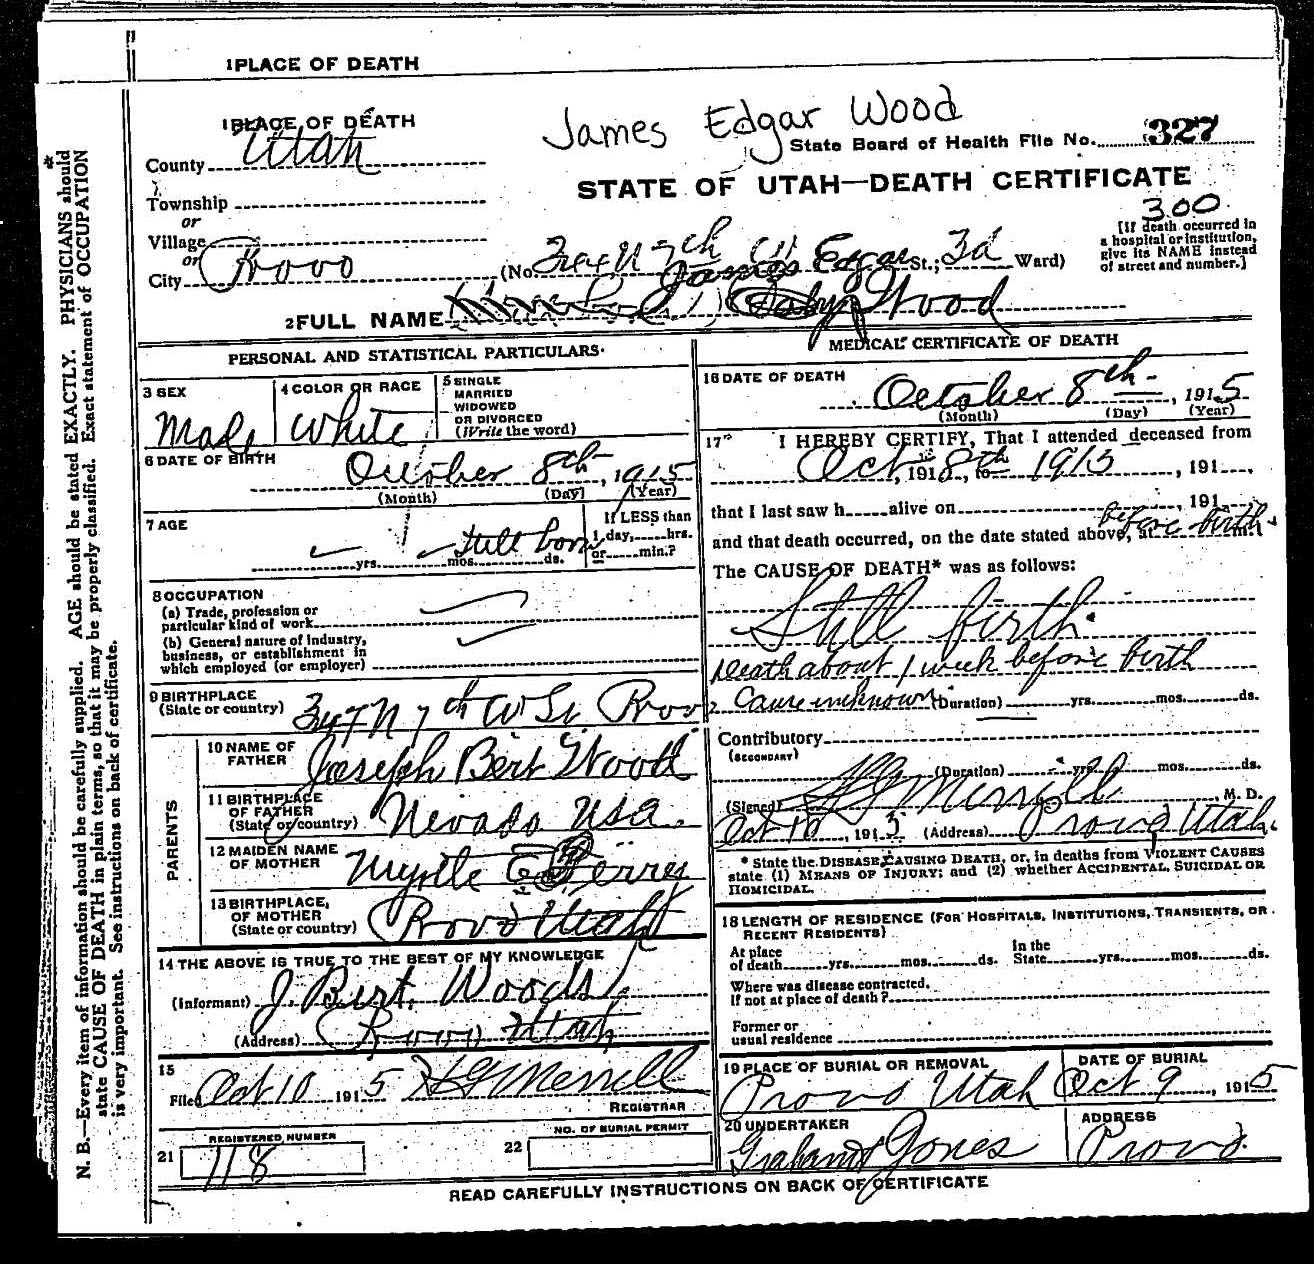 1 PLACE OF DEATH
1 PLACE OF DEATH
James Edgar Wood
County Utah
State Board of Health File No. 327
STATE OF UTAH—DEATH CERTIFICATE
300
Township
or
Village
or
City Provo
(No. 7th W St.; 3d Ward)
[If death occurred in
a hospital or institution,
give its NAME instead
of street and number.]
James Edgar
2 FULL NAME Baby Wood
PERSONAL AND STATISTICAL PARTICULARS.
3 SEX
Male
4 COLOR OR RACE
White
5 SINGLE
MARRIED
WIDOWED
OR DIVORCED
(Write the word)
6 DATE OF BIRTH
October 8th, 1915
(Month) (Day) (Year)
7 AGE
Still born
yrs. mos. ds.
If LESS than
1 day, hrs.
or min.?
8 OCCUPATION
(a) Trade, profession or
particular kind of work
(b) General nature of industry,
business, or establishment in
which employed (or employer)
9 BIRTHPLACE
(State or country) 347 N 7th W St Provo
PARENTS
10 NAME OF
FATHER
Joseph Bert Wood
11 BIRTHPLACE
OF FATHER
(State or country) Nevada USA.
12 MAIDEN NAME
OF MOTHER Myrtle Ferre
13 BIRTHPLACE,
OF MOTHER
(State or country) Provo Utah
14 THE ABOVE IS TRUE TO THE BEST OF MY KNOWLEDGE
(Informant) J. Burt. Woods
(Address) Provo Utah
15
Filed Oct 10 1915 H G Merrill
REGISTRAR
REGISTERED NUMBER
21 118
NO. OF BURIAL PERMIT
22
MEDICAL CERTIFICATE OF DEATH
16 DATE OF DEATH
October 8th, 1915
(Month) (Day) (Year)
17 I HEREBY CERTIFY, That I attended deceased from
Oct, 191 8th, to 1915, 191
that I last saw h alive on , 191
and that death occurred, on the date stated above, at before birth m.
The CAUSE OF DEATH* was as follows:
Still birth.
Death about 1 week before birth
Cause unknown (Duration) yrs. mos. ds.
Contributory
(SECONDARY)
(Duration) yrs. mos. ds.
(Signed) H G Merrill, M. D.
Oct 10, 1915 (Address) Provo Utah.
* State the DISEASE CAUSING DEATH, or, in deaths from VIOLENT CAUSES
state (1) MEANS OF INJURY; and (2) whether ACCIDENTAL, SUICIDAL OR
HOMICIDAL.
18 LENGTH OF RESIDENCE (FOR HOSPITALS, INSTITUTIONS, TRANSIENTS, OR
RECENT RESIDENTS)
At place
of death yrs. mos. ds.
In the
State yrs. mos. ds.
Where was disease contracted,
If not at place of death?
Former or
usual residence
19 PLACE OF BURIAL OR REMOVAL
Provo Utah
DATE OF BURIAL
Oct 9, 1915
20 UNDERTAKER
Graham Jones
ADDRESS
Provo.
READ CAREFULLY INSTRUCTIONS ON BACK OF CERTIFICATE
N. B.—Every item of information should be carefully supplied. AGE should be stated EXACTLY. PHYSICIANS should
state CAUSE OF DEATH in plain terms, so that it may be properly classified. Exact statement of OCCUPATION
is very important. See instructions on back of certificate.